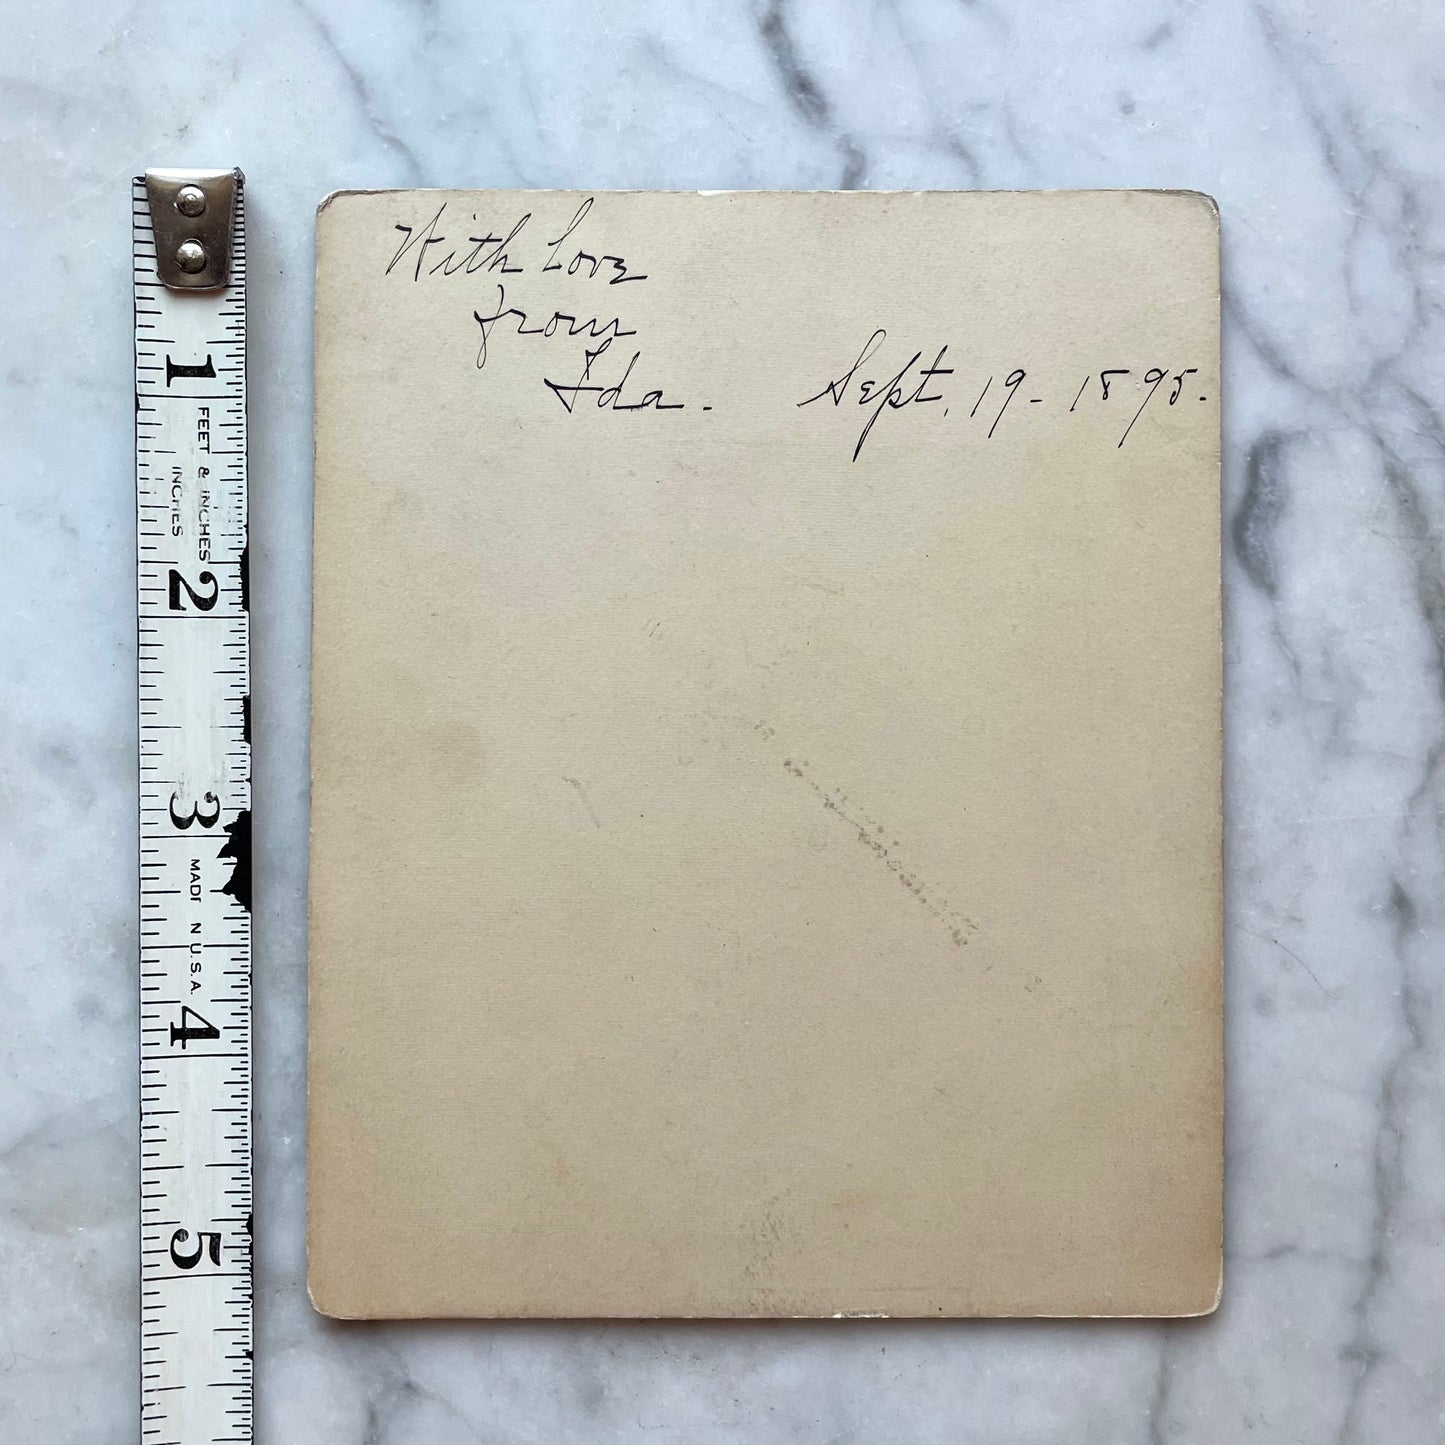 With love
from
Ida. Sept. 19 - 1895.
1
FEET & INCHES
INCHES
2
3
MADE IN U.S.A.
4
5